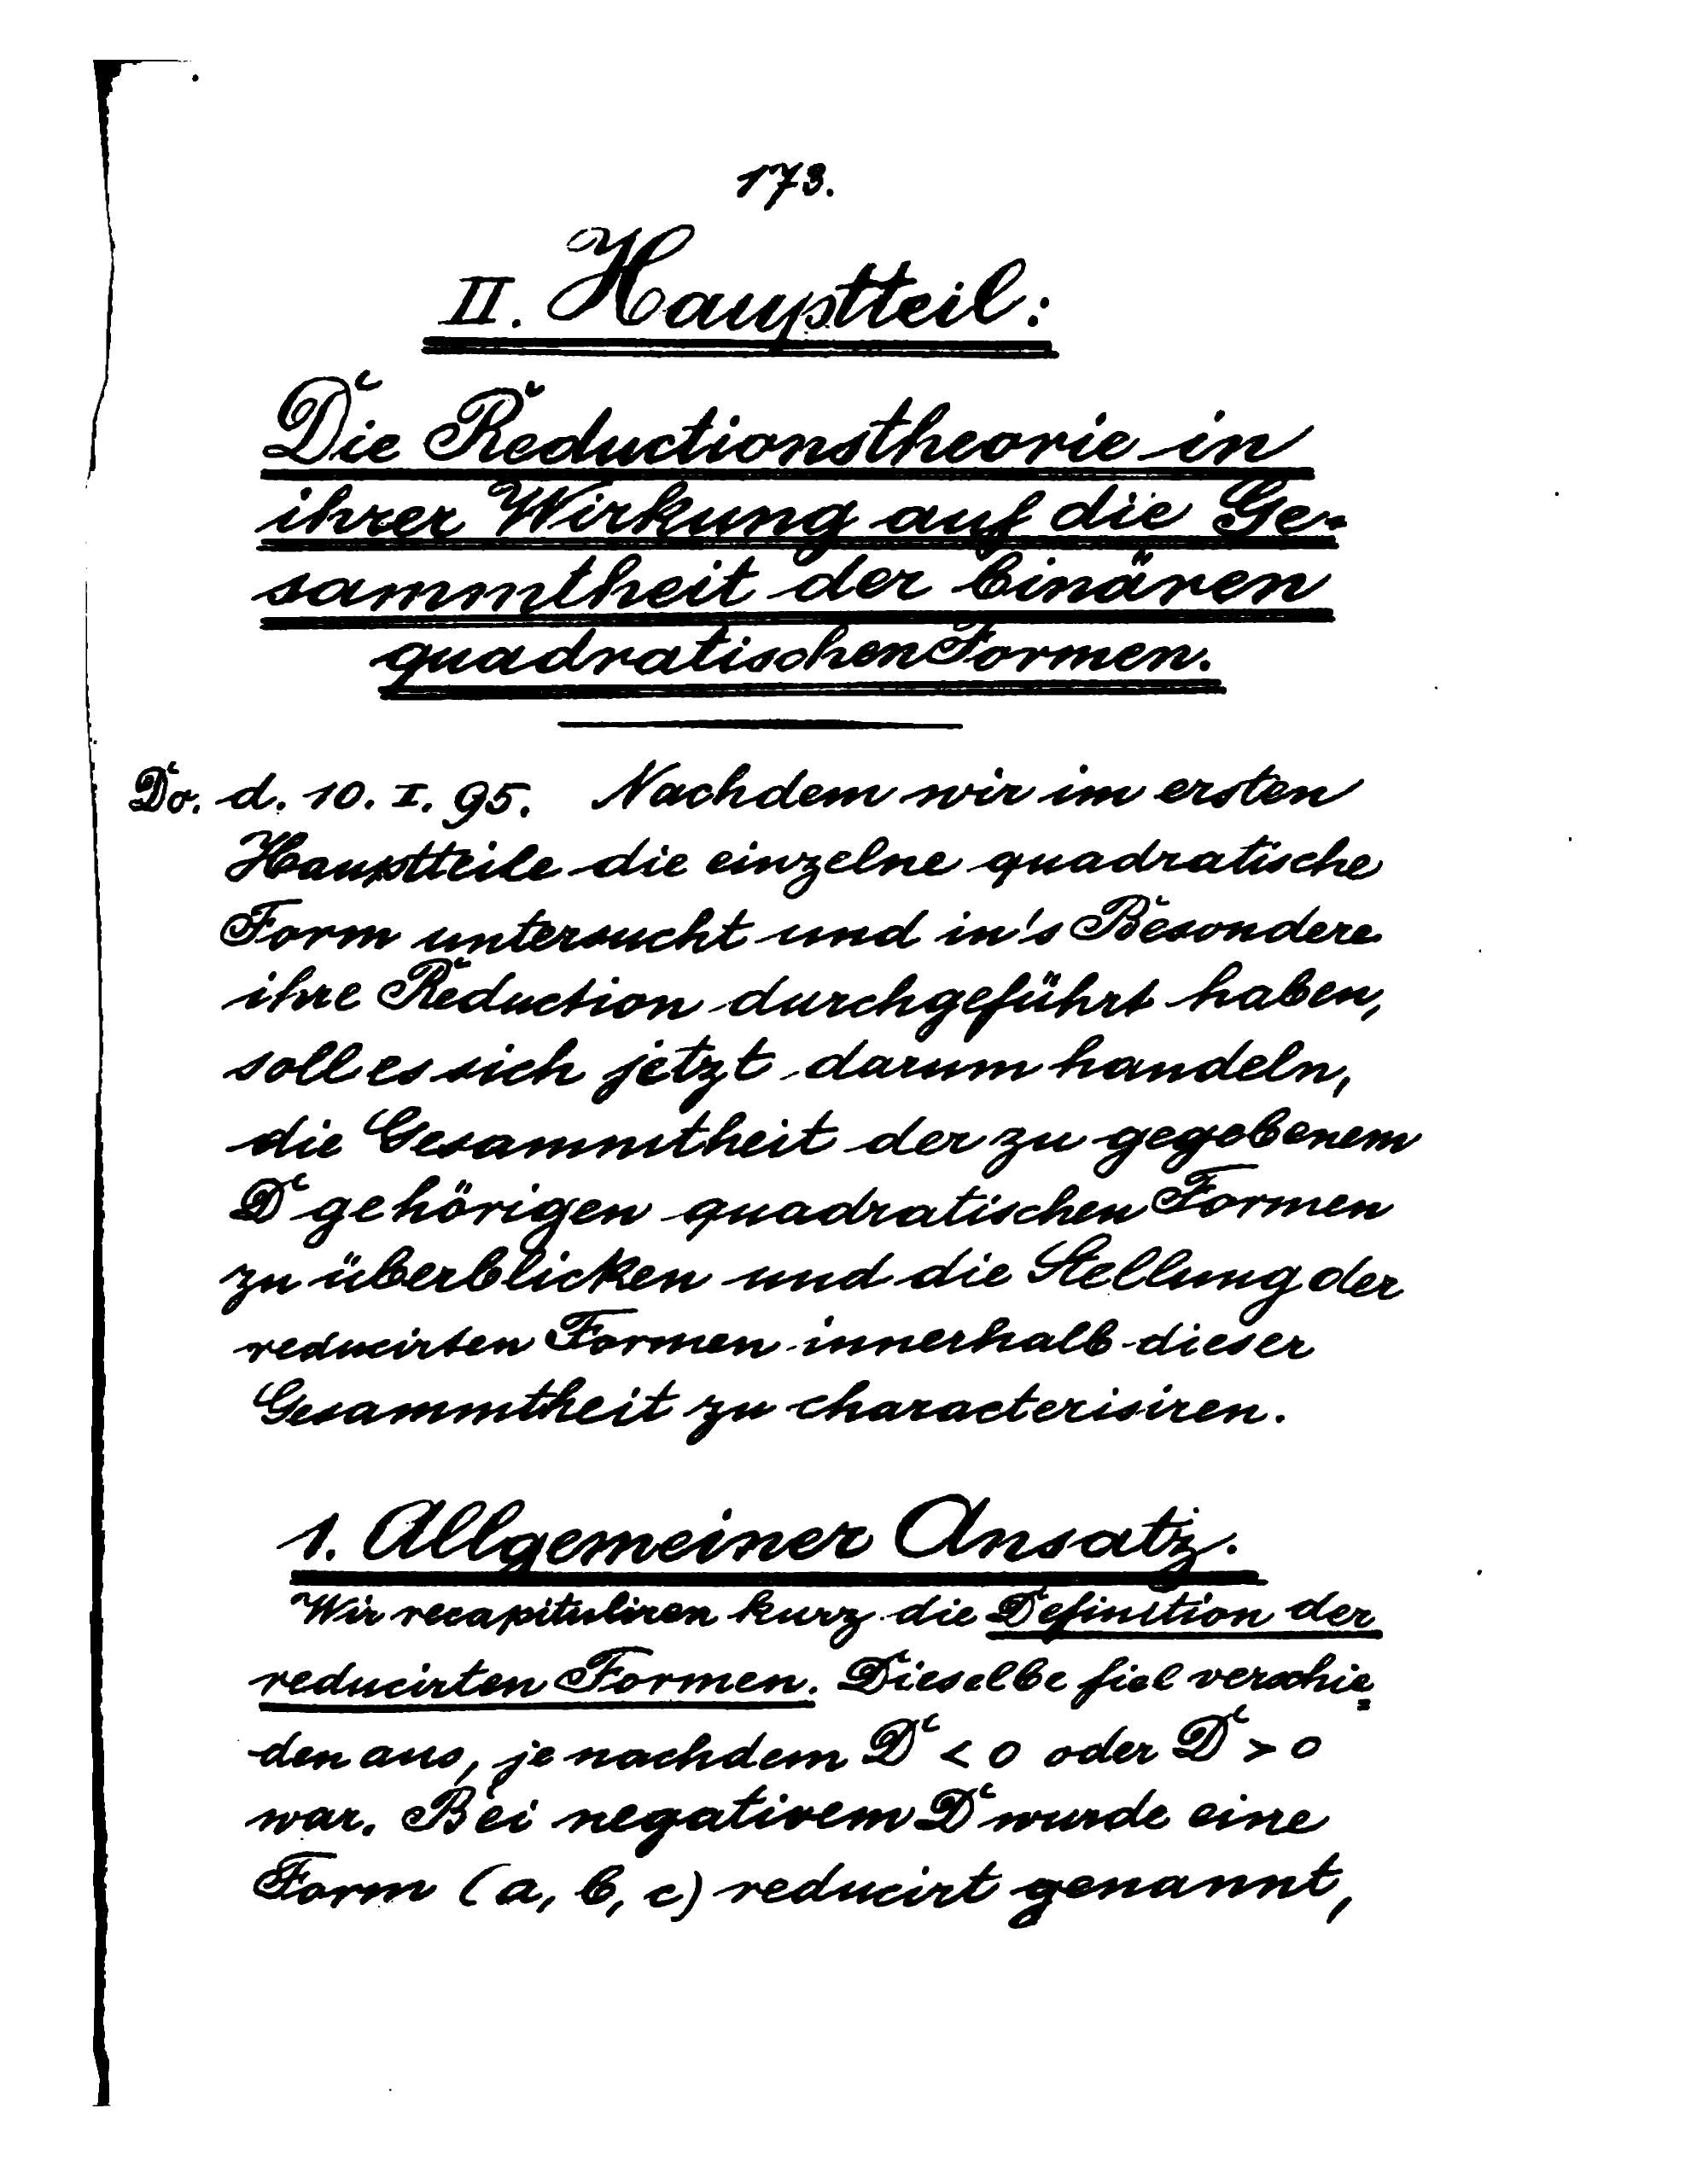 173.
II. Hauptteil:
Die Reductionstheorie in
ihrer Wirkung auf die Ge-
sammtheit der binären
quadratischen Formen.
Do. d. 10. I. 95. Nachdem wir im ersten
Hauptteile die einzelne quadratische
Form untersucht und in's Besondere
ihre Reduction durchgeführt haben,
soll es sich jetzt darum handeln,
die Gesammtheit der zu gegebenem
D gehörigen quadratischen Formen
zu überblicken und die Stellung der
reducirten Formen innerhalb dieser
Gesammtheit zu characterisiren.
1. Allgemeiner Ansatz.
Wir recapituliren kurz die Definition der
reducirten Formen. Dieselbe fiel verschie-
den aus, je nachdem D < 0 oder D > 0
war. Bei negativem D wurde eine
Form (a, b, c) reducirt genannt,